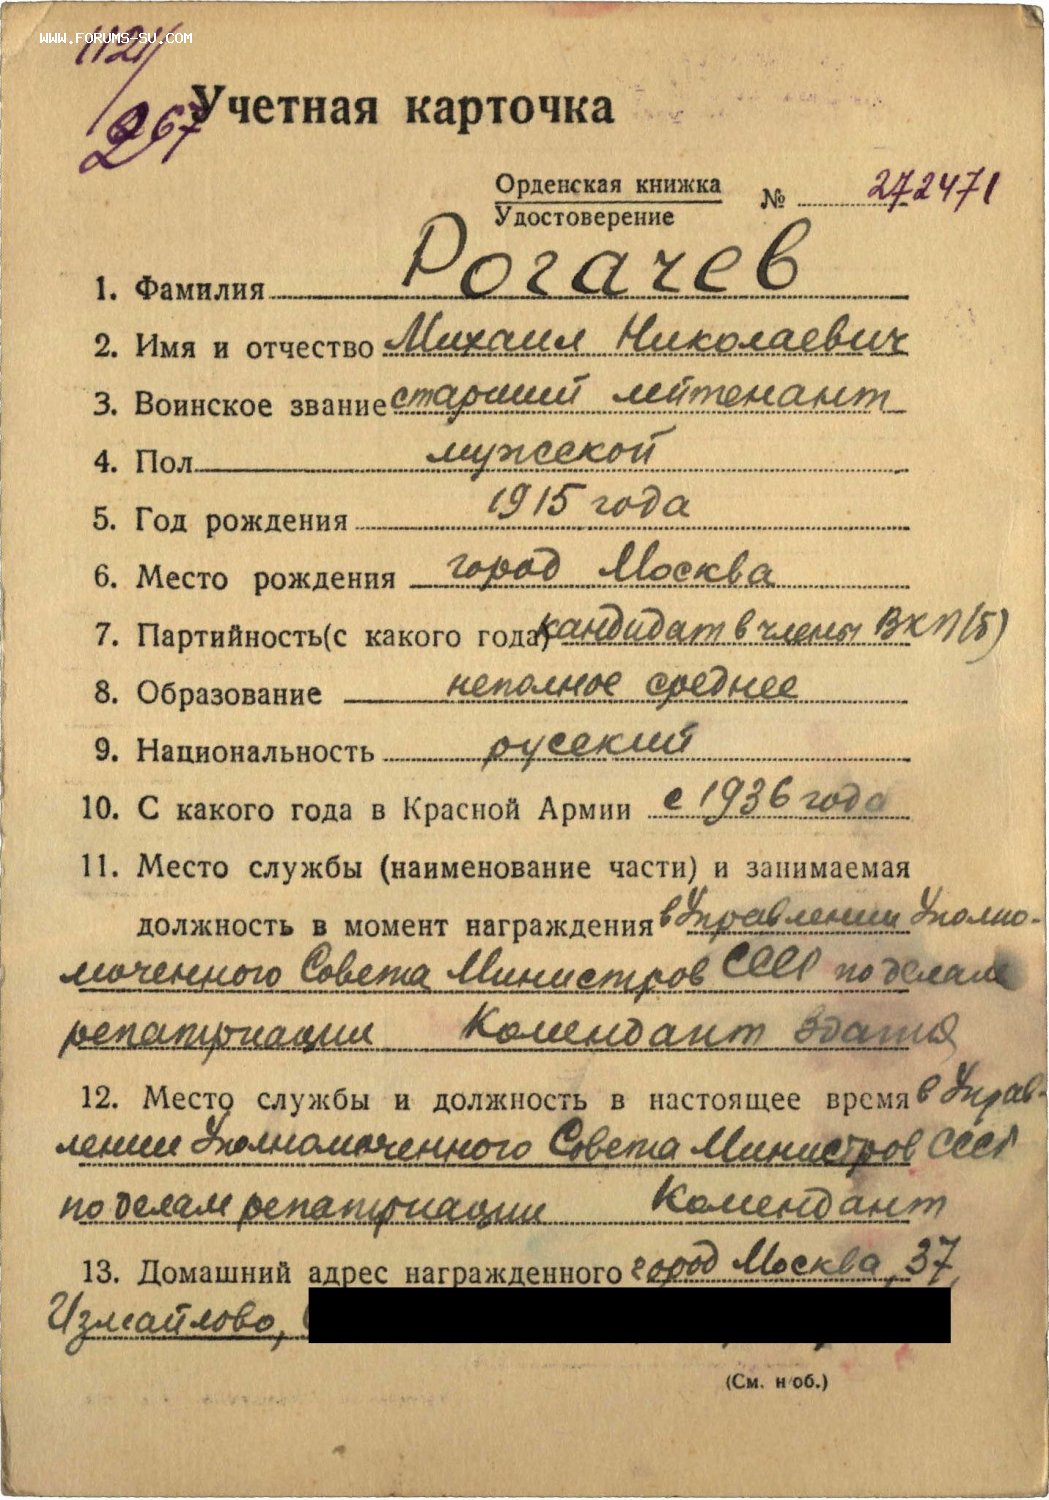 www.forums-su.com
1121/
267
Учетная карточка
Орденская книжка
Удостоверение
№ 272471
1. Фамилия Рогачев
2. Имя и отчество Михаил Николаевич
3. Воинское звание старший лейтенант
4. Пол мужской
5. Год рождения 1915 года
6. Место рождения город Москва
7. Партийность(с какого года) кандидат в члены ВКП(б)
8. Образование неполное среднее
9. Национальность русский
10. С какого года в Красной Армии с 1936 года
11. Место службы (наименование части) и занимаемая
должность в момент награждения в Управлении Уполно-
моченного Совета Министров СССР по делам
репатриации Комендант здания
12. Место службы и должность в настоящее время в Управ-
лении Уполномоченного Совета Министров СССР
по делам репатриации Комендант
13. Домашний адрес награжденного город Москва, 37,
Измайлово,
(См. н/об.)